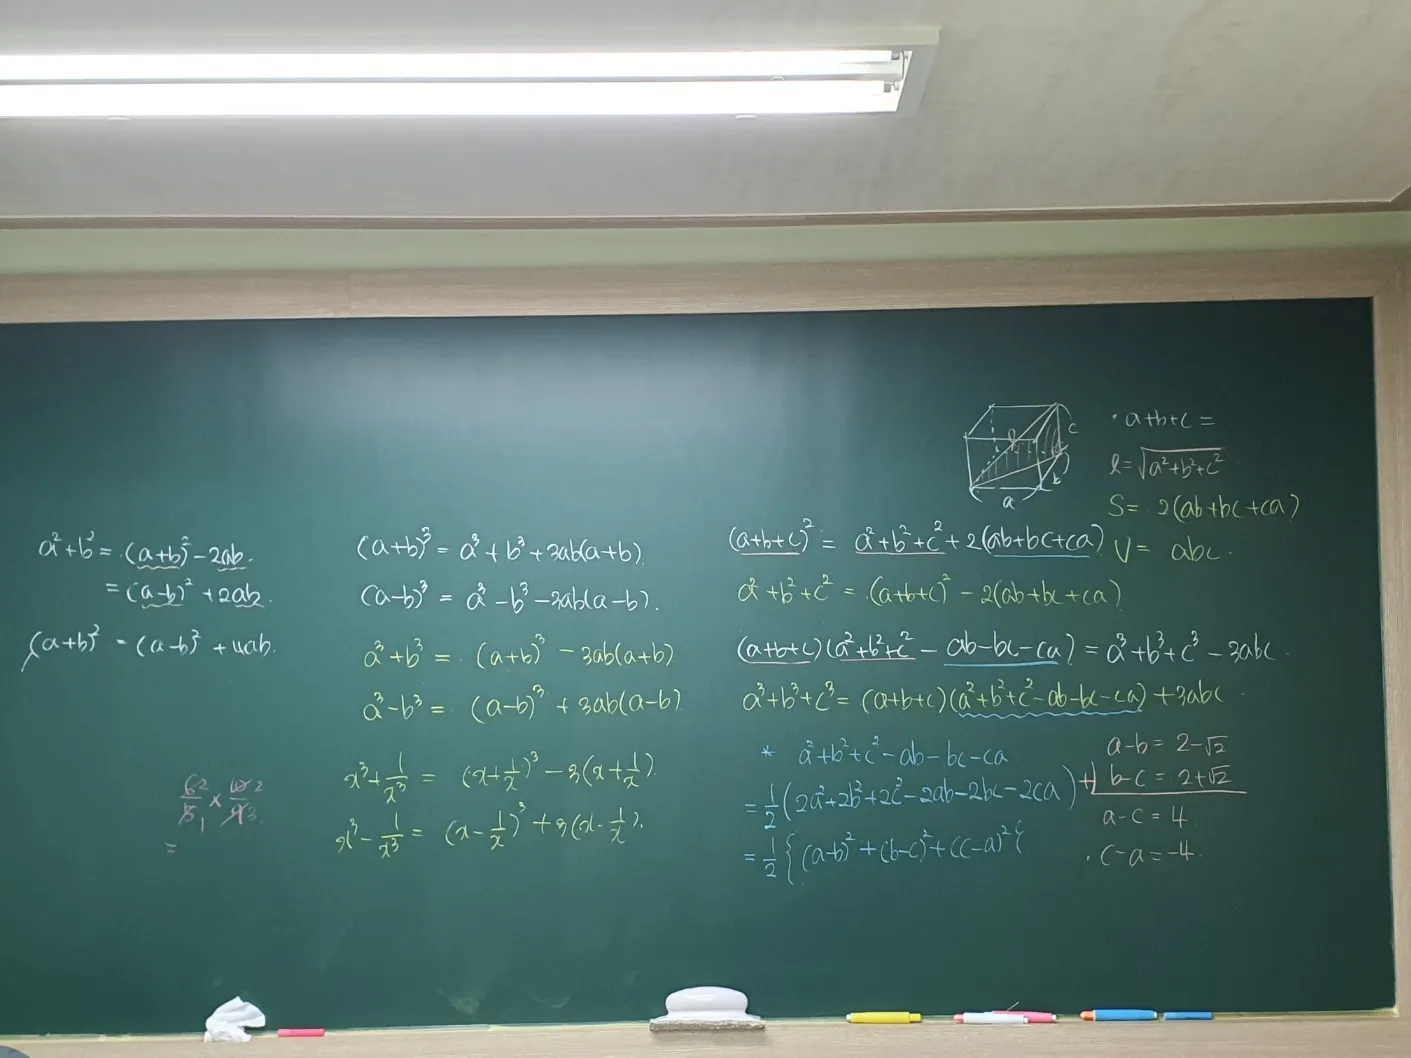 a²+b² = (a+b)² - 2ab.
= (a-b)² + 2ab.
(a+b)² = (a-b)² + 4ab.
=
(a+b)³ = a³ + b³ + 3ab(a+b).
(a-b)³ = a³ - b³ - 3ab(a-b).
a³+b³ = (a+b)³ - 3ab(a+b)
a³-b³ = (a-b)³ + 3ab(a-b)
x³ + 1/x³ = (x+1/x)³ - 3(x+1/x).
x³ - 1/x³ = (x-1/x)³ + 3(x-1/x).
a
c
· a+b+c =
l = √(a²+b²+c²)
S = 2(ab+bc+ca)
V = abc.
(a+b+c)² = a²+b²+c²+2(ab+bc+ca)
a²+b²+c² = (a+b+c)² - 2(ab+bc+ca)
(a+b+c)(a²+b²+c² - ab-bc-ca) = a³+b³+c³ - 3abc.
a³+b³+c³ = (a+b+c)(a²+b²+c²-ab-bc-ca) + 3abc
* a²+b²+c²-ab-bc-ca
= 1/2(2a²+2b²+2c²-2ab-2bc-2ca)
= 1/2{(a-b)²+(b-c)²+(c-a)²{
a-b = 2-√2
+) b-c = 2+√2
a-c = 4
· c-a = -4.